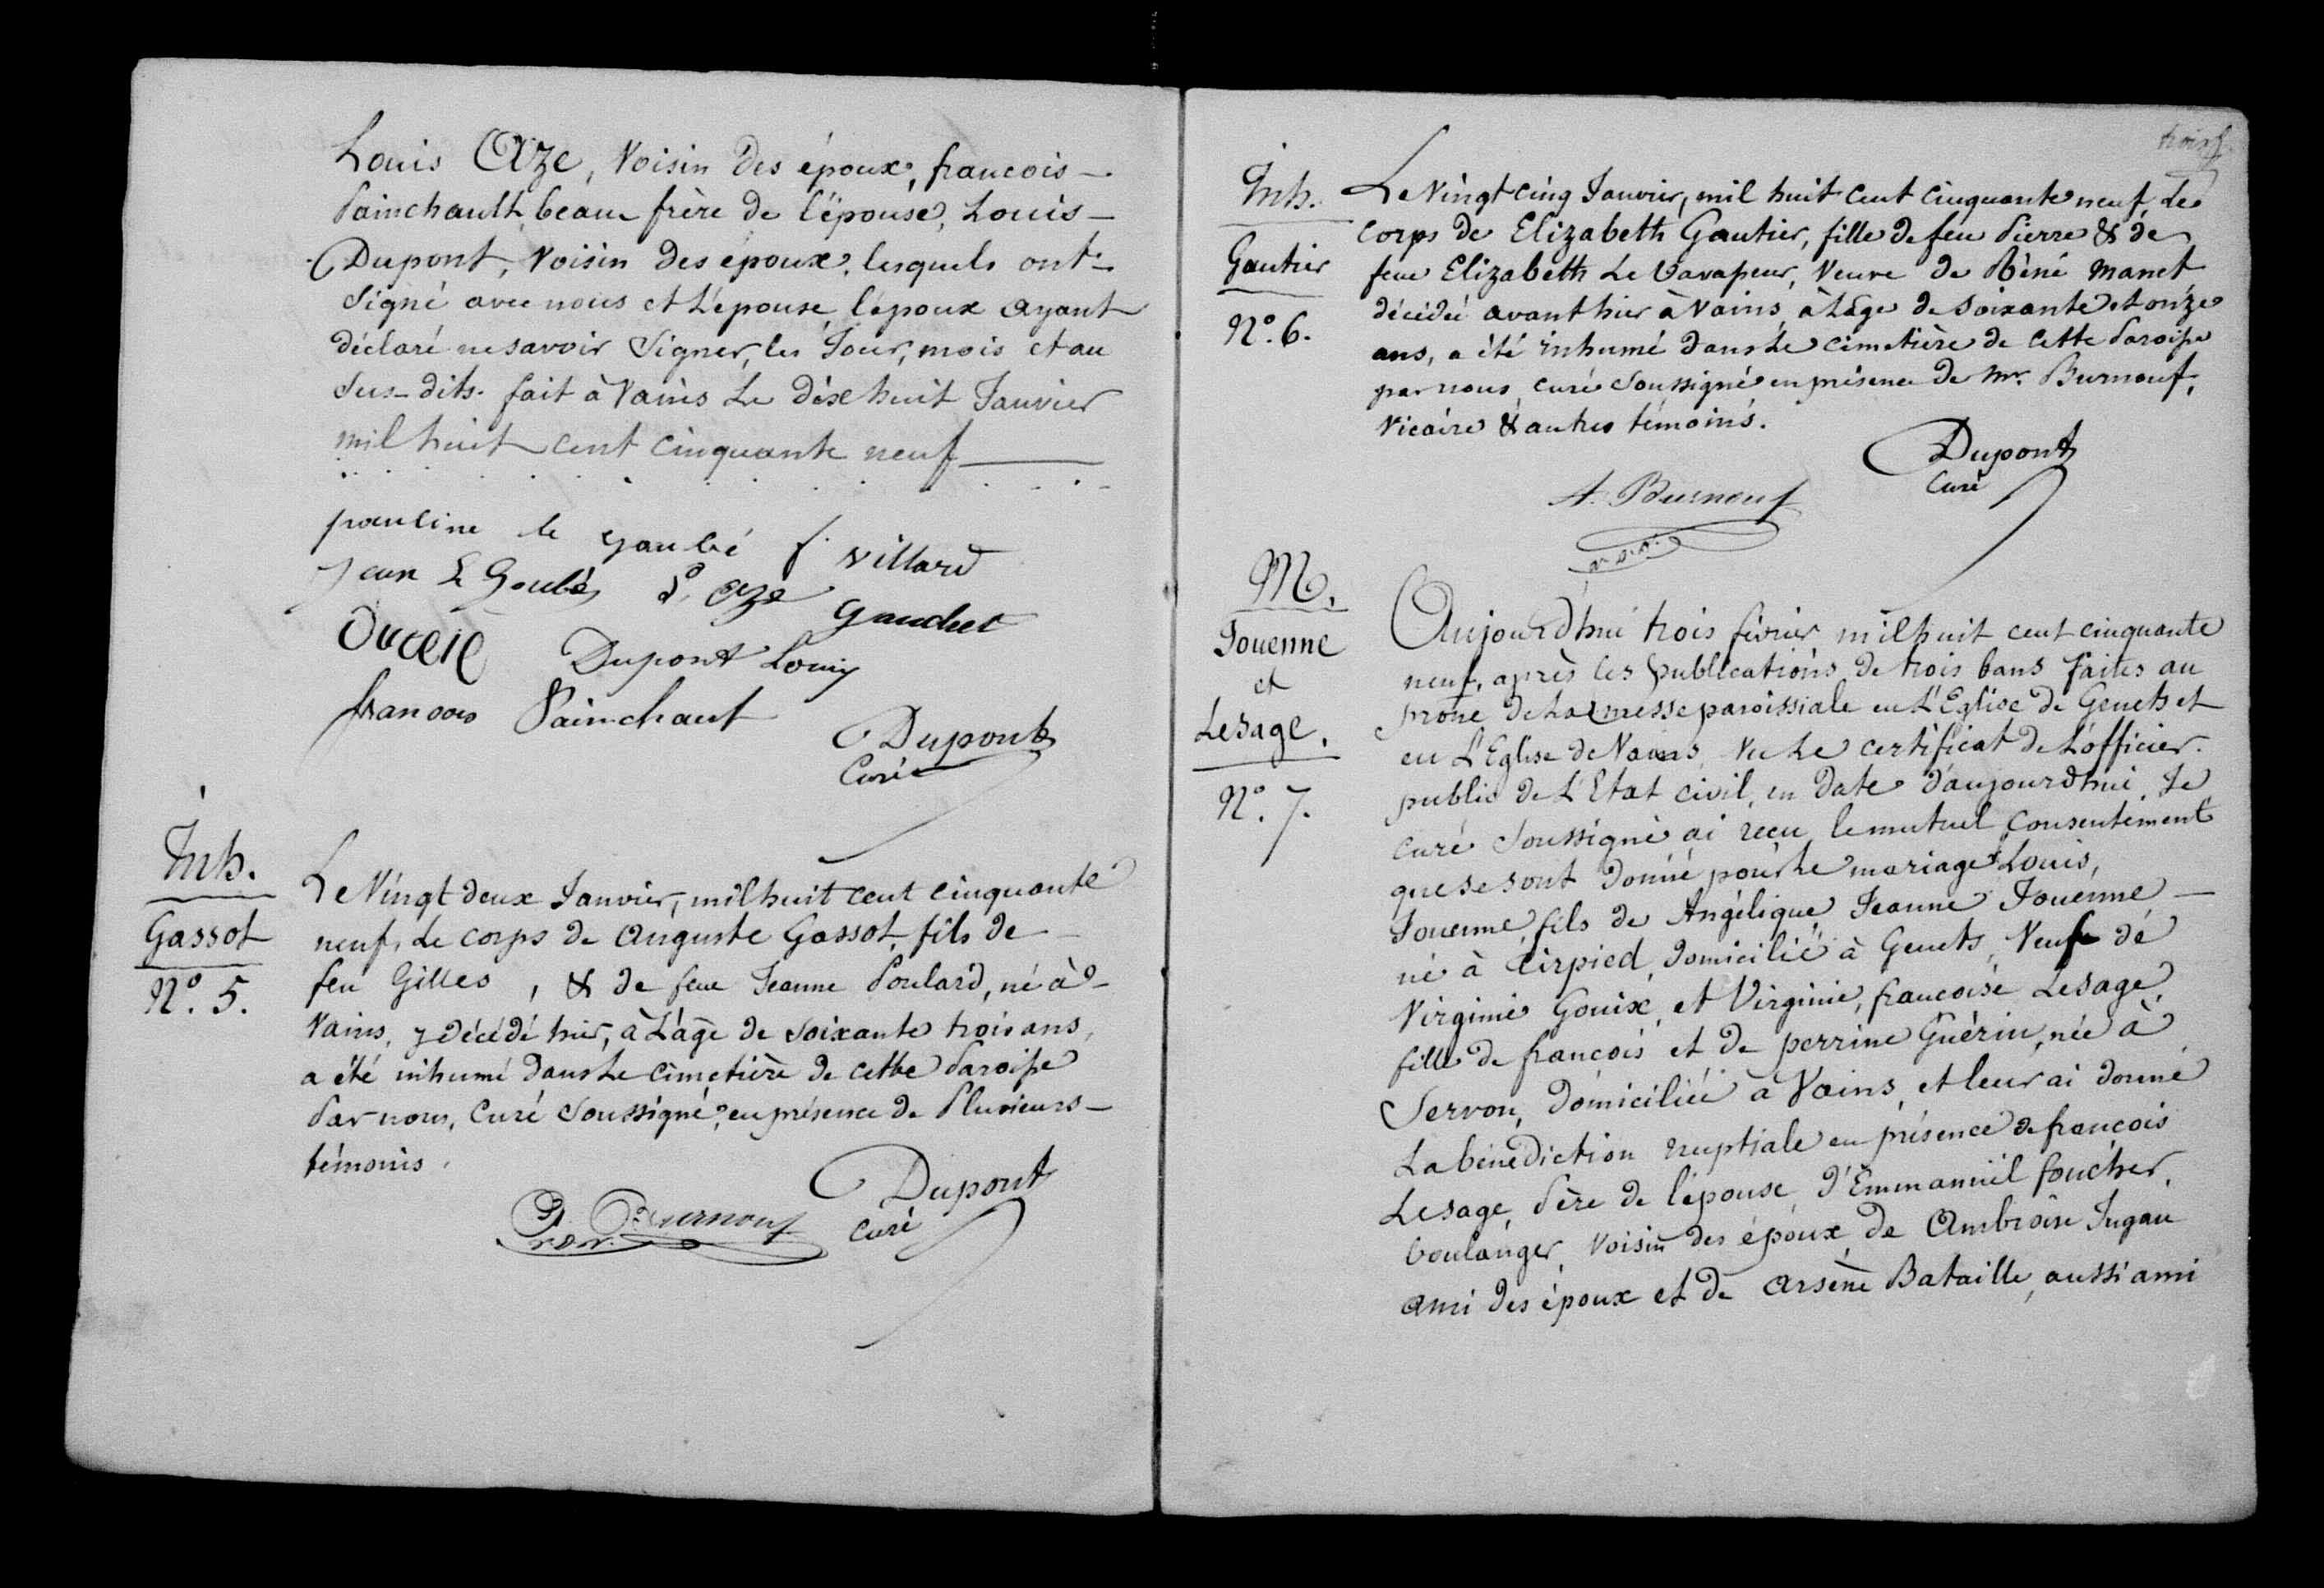 Louis Aze, Voisin des époux, francois –
Painchault, beau frère de l'épouse, Louis –
Dupont, Voisin des époux, lesquels ont –
Signé avec nous et L'épouse, l'époux ayant
déclaré ne savoir Signer, les Jour, mois et an
Sus-dits. fait à Vains Le dixhuit Janvier
mil huit cent cinquante neuf
pauline le goubé f. villard
Jean Le Goubé L. aze gauchet
Dupont Louis
francois Painchaut
Dupont
Curé
Inh.
Gassot
N°. 5.
Le Vingt deux Janvier, mil huit cent cinquante
neuf, Le corps de Auguste Gassot, fils de –
feu Gilles, & de feue Jeanne Poulard, né à –
Vains, y décédé hier, à L'âge de soixante trois ans,
a été inhumé dans Le cimetière de cette Paroisse
Par nous, Curé Soussigné, en présence de Plusieurs –
témoins.
Burnouf
Dupont
Curé
trois
Inh.
Gautier
N°. 6.
Le Vingt cinq Janvier, mil huit cent cinquante neuf, Le
corps de Elizabeth Gautier, fille de feu Pierre & de
feue Elizabeth Le Vavasseur, Veuve de Réné Manet
décédée avant hier à Vains, à L'âge de soixante et onze
ans, a été inhumé dans Le cimetière de cette Paroisse
par nous, curé Soussigné en présence de Mr. Burnouf,
Vicaire & autres témoins.
Dupont
Curé
A. Burnouf
M.
Jouenne
et
Lesage.
N°. 7.
Aujourd'hui trois février mil huit cent cinquante
neuf, après les publications de trois bans faites au
prone de La messe paroissiale en L'Eglise de Genets et
en L'Eglise de Vains, Vu Le certificat de L'officier
public de L'Etat civil, en date d'aujourdhui, Je
curé Soussigné ai reçu le mutuel consentement
que se sont donné pour Le mariage Louis,
Jouenne, fils de Angélique Jeanne Jouenne –
né à Tirpied, domicilié à Genets, Veuf de
Virginie Gouix, et Virginie, francoise Lesage,
fille de francois et de perrine Guérin, née à
Servon, domiciliée à Vains, et leur ai donné
La bénédiction nuptiale en présence de francois
Lesage, Père de l'épouse, d'Emmanuël foucher,
boulanger, voisin des époux, de Ambroise Jugan
ami des époux et de arsène Bataille, aussi ami